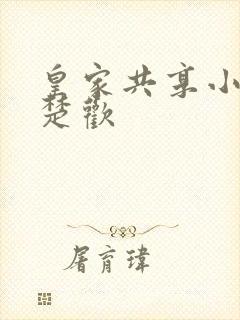 皇家共享小
楚歡
屠育瑋